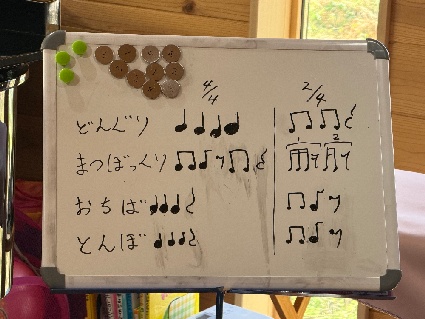 4/4 2/4
どんぐり
まつぼっくり 1 2
おちば
とんぼ